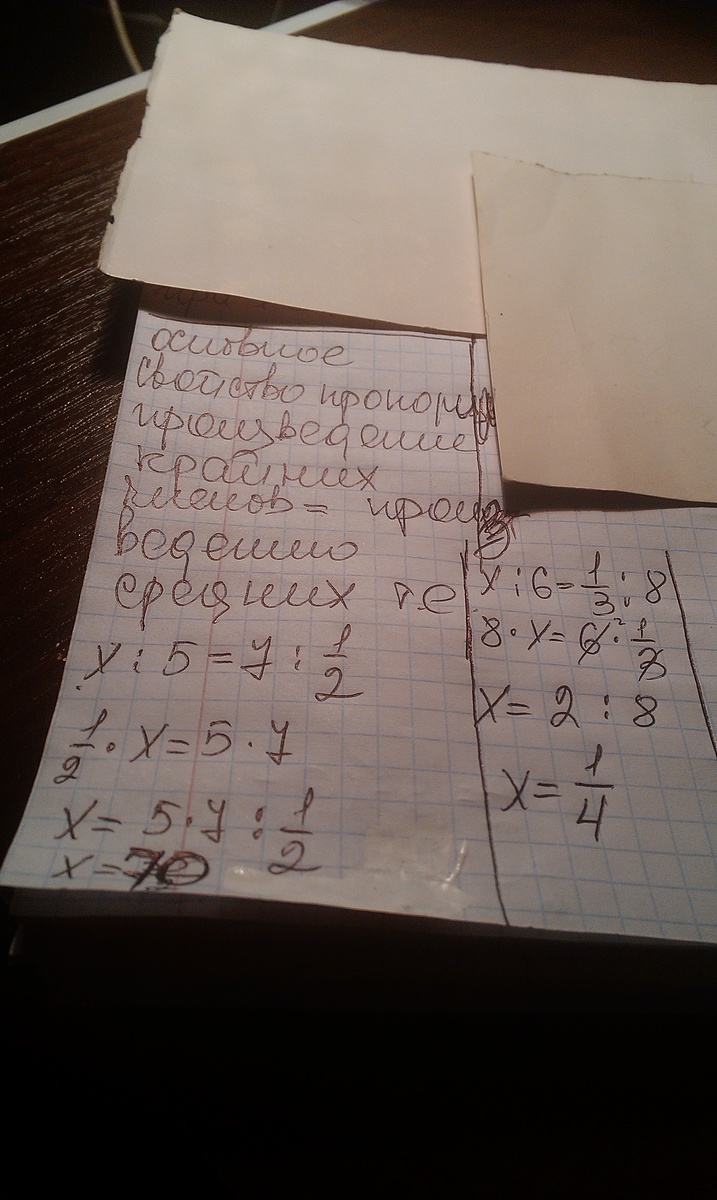 основное
свойство пропорции
произведение
крайних
членов = произ
ведению
средних те
x : 5 = 7 : 1/2
1/2 · x = 5 · 7
x = 5·7 : 1/2
x = 70
x : 6 = 1/3 : 8
8 · x = 6² : 1/3
x = 2 : 8
x = 1/4